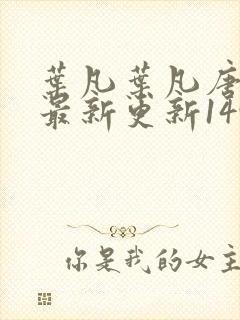 葉凡葉凡唐
最新更新14
你是我的女主